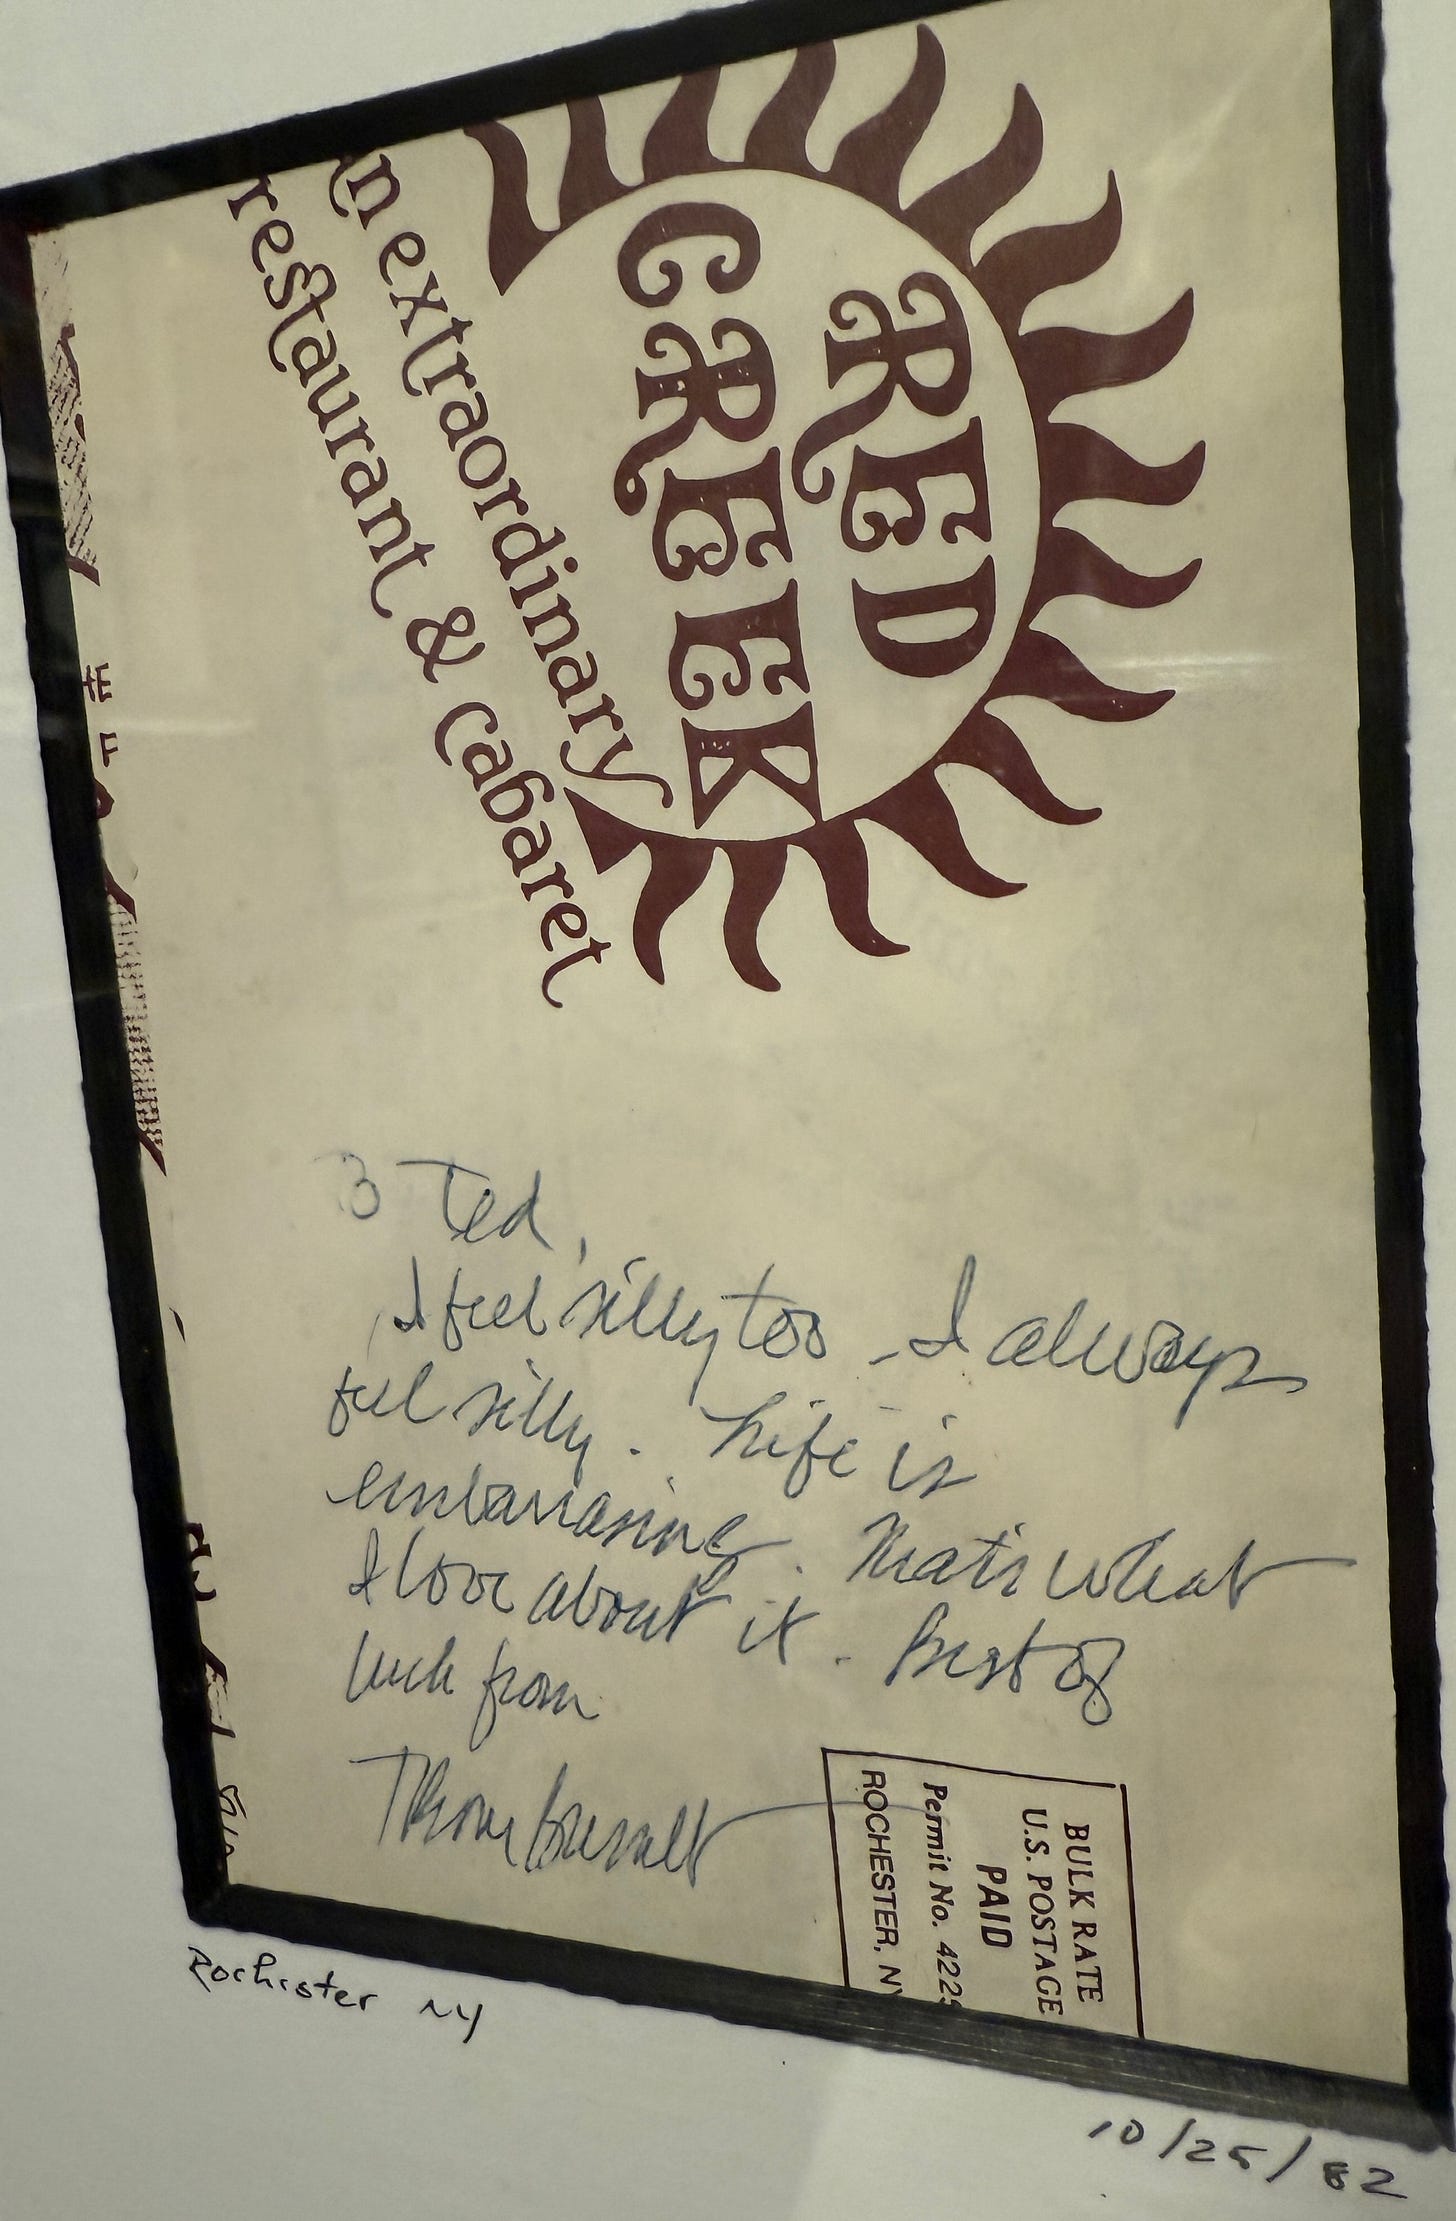 RED
CREEK
an extraordinary
restaurant & cabaret
Ted,
I feel silly too, I always
feel silly. Life is
embarrasing. That's what
I love about it. Best of
luck from
BULK RATE
U.S. POSTAGE
PAID
Permit No. 4225
ROCHESTER, NY
Rochester NY
10/25/82